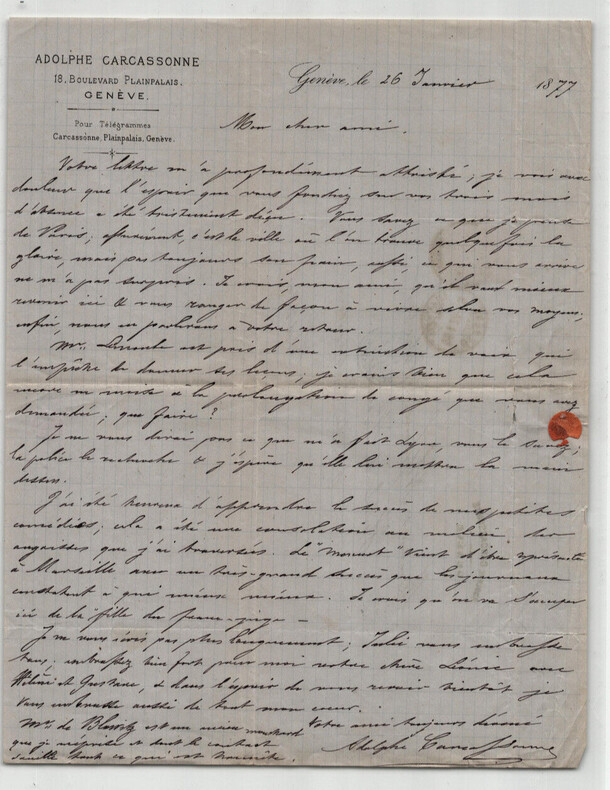 ADOLPHE CARCASSONNE
18, BOULEVARD PLAINPALAIS,
GENÈVE.
Pour Télégrammes
Carcassonne, Plainpalais, Genève.
Genève, le 26 Janvier 1877
Mon cher ami,
Votre lettre m'a profondément attristé; je vois avec
douleur que l'espoir que vous fondiez sur vos trois mois
d'absence a été tristement déçu. Vous savez ce que je pense
de Paris; c'est la ville où l'on trouve quelquefois la
gloire, mais pas toujours son pain, aussi, ce qui vous arrive
ne m'a pas surpris. Je crois, mon ami, qu'il vaut mieux
revenir ici & vous ranger de façon à vivre selon vos moyens;
enfin, nous en parlerons à votre retour.
Mr. est pris d'une extinction de voix, qui
l'empêche de donner ses leçons; je crains bien que cela
encore ne nuise à la prolongation de congé que vous avez
demandée; que faire?
Je ne vous dirai pas ce que m'a fait, vous le savez;
la police le recherche & j'espère qu'elle lui mettra la main
dessus.
J'ai été heureux d'apprendre le succès de mes petites
comédies; cela a été une consolation au milieu des
angoisses que j'ai traversées. Le vient d'être représenté
à Marseille avec un très-grand succès que les journaux
constatent à qui mieux mieux. Je crois qu'on va s'occuper
ici de la fille du franc-juge —
Je ne vous écris pas plus longuement; vous embrasse
tous; embrassez bien fort pour moi votre chère avec
Hélène et Gustave, & dans l'espoir de vous revoir bientôt je
vous embrasse aussi de tout mon cœur.
Votre ami toujours dévoué
Adolphe Carcassonne
Mr. de Blowitz est un ancien mouchard
que je méprise et dont le contact
souille tout ce qui est honnête.